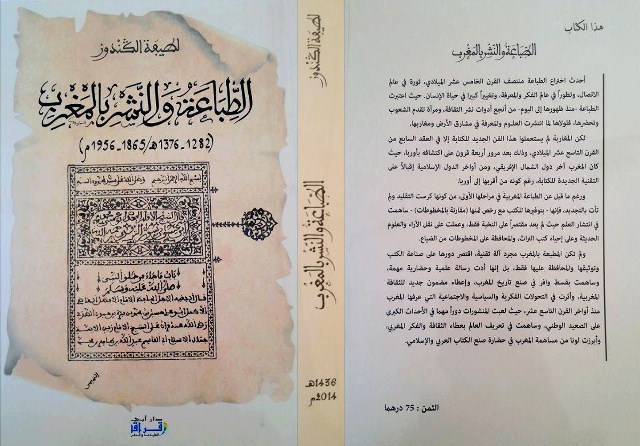 لطيفة الكندوز
الطباعة والنشر بالمغرب
(1282-1376هـ/1865-1956م)
دار أبي
رقراق
للطباعة والنشر
لطيفة الكندوز
الطباعة والنشر بالمغرب
1436هـ
2014م
هذا الكتاب
الطباعة والنشر بالمغرب
أحدث اختراع الطباعة منتصف القرن الخامس عشر الميلادي، ثورة في عالم
الاتصال، وتطورا في عالم الفكر والمعرفة، وتغييرا كبيرا في حياة الإنسان. حيث اعتبرت
الطباعة -منذ ظهورها إلى اليوم- من أنجع أدوات نشر الثقافة، ومرآة تقدم الشعوب
وتحضرها، فلولاها لما انتشرت العلوم والمعرفة في مشارق الأرض ومغاربها.
لكن المغاربة لم يستعملوا هذا الفن الجديد للكتابة إلا في العقد السابع من
القرن التاسع عشر الميلادي، وذلك بعد مرور أربعة قرون على اكتشافه بأوربا، حيث
كان المغرب آخر دول الشمال الإفريقي، ومن أواخر الدول الإسلامية إقبالاً على
التقنية الجديدة للكتابة، رغم كونه من أقربها إلى أوربا.
ورغم ما قيل عن الطباعة المغربية في مراحلها الأولى، من كونها كرست التقليد ولم
تأت بالتجديد، فإنها - بتوفيرها للكتب مع رخص ثمنها (مقارنة بالمخطوطات) - ساهمت
في انتشار العلم حيث لم يعد مقتصراً على النخبة فقط، وعملت على نقل الآراء والعلوم
الحديثة وعلى إحياء كتب التراث، والمحافظة على المخطوطات من الضياع.
ولم تكن المطبعة بالمغرب مجرد آلة تقنية، اقتصر دورها على صناعة الكتب
وتوثيقها والمحافظة عليها فقط، بل إنها أدت رسالة علمية وحضارية مهمة،
وساهمت بقسط وافر في صنع تاريخ المغرب، وإعطاء مضمون جديد للثقافة
المغربية، وأثرت في التحولات الفكرية والسياسية والاجتماعية التي عرفها المغرب
منذ أواخر القرن التاسع عشر، حيث لعبت المنشورات دوراً مهما في الأحداث الكبرى
على الصعيد الوطني، وساهمت في تعريف العالم بعطاء الثقافة والفكر المغربي،
وأبرزت لونا من مساهمة المغرب في حضارة صنع الكتاب العربي والإسلامي.
الثمن : 75 درهما